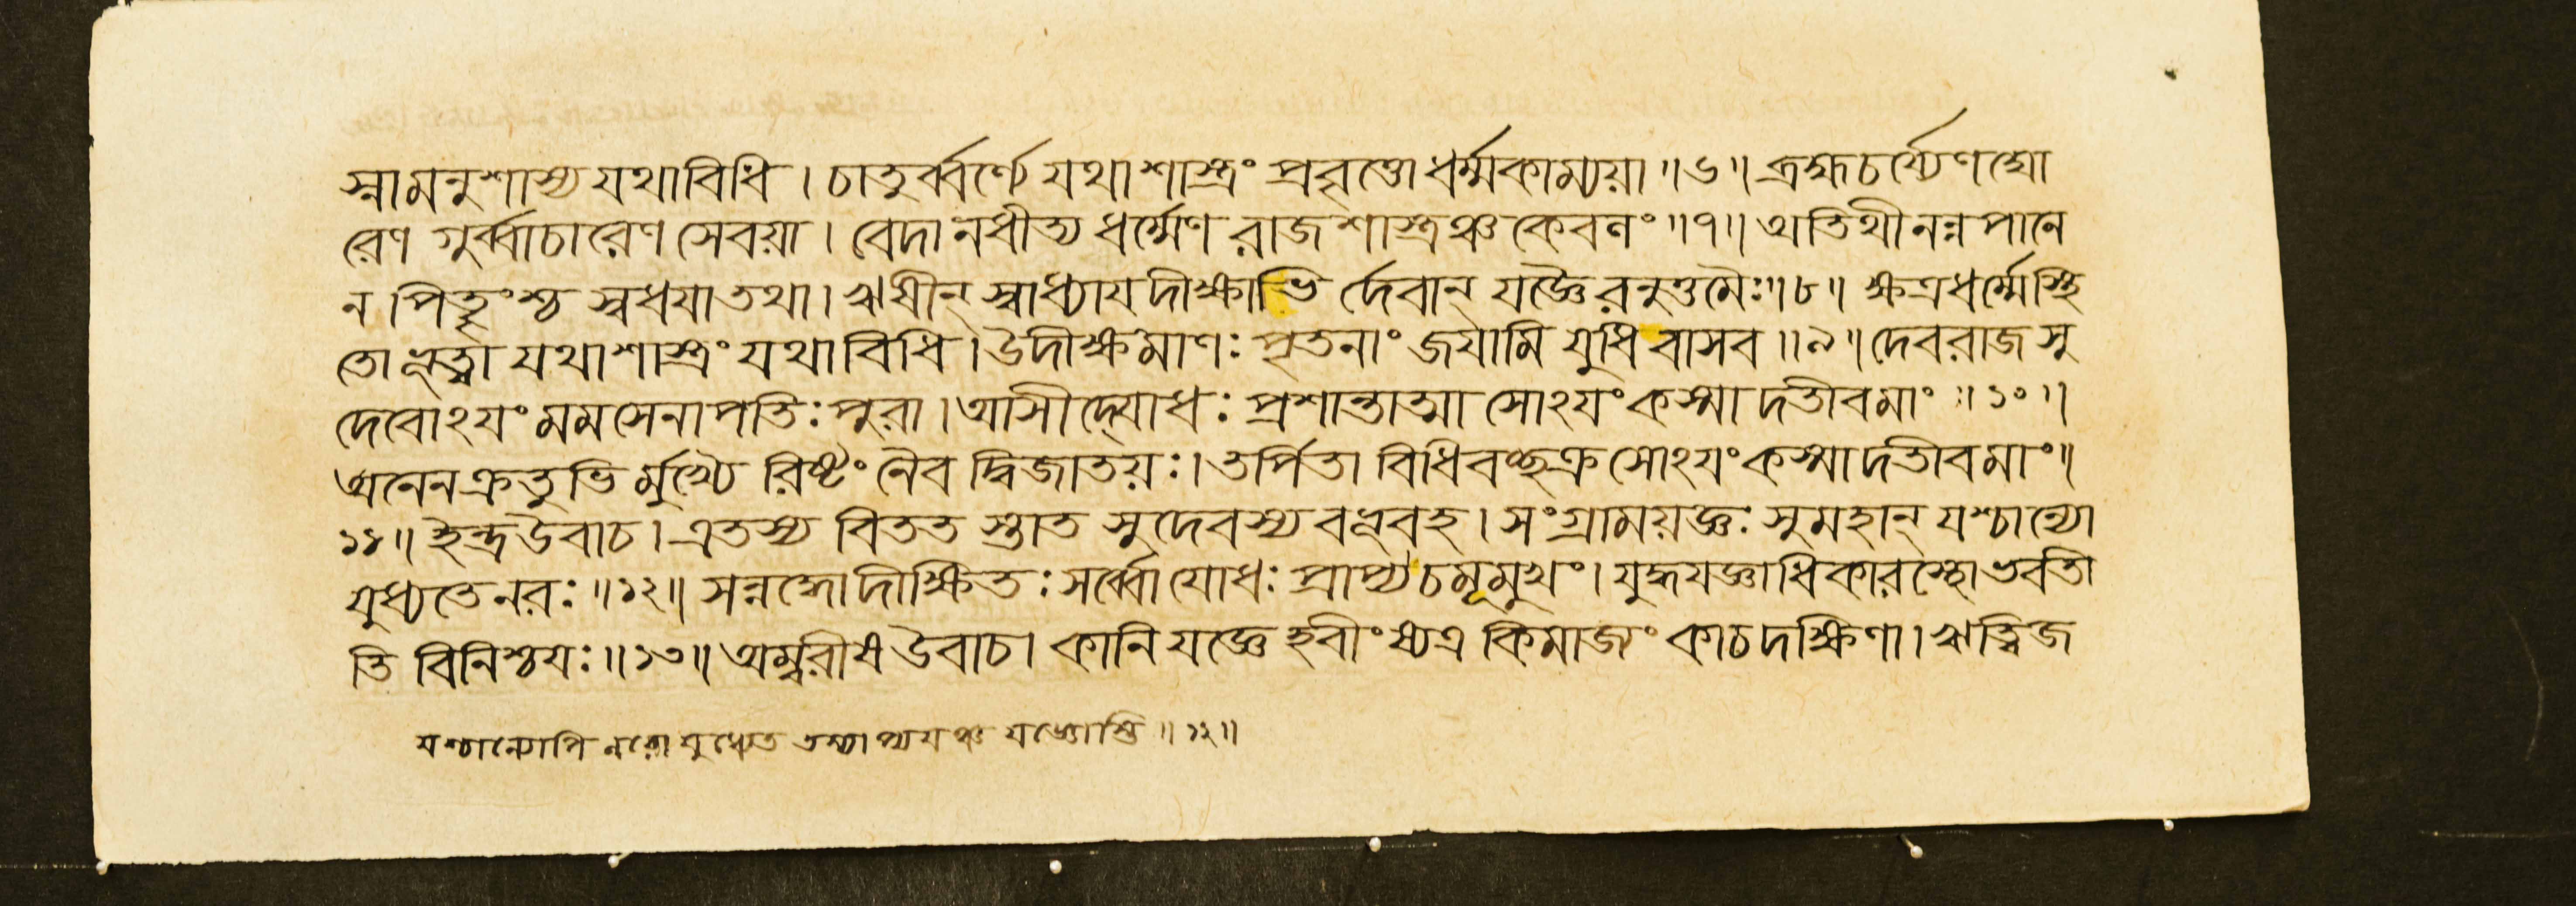 স্নামনুশাস্য যথাবিধি । চাতুর্ব্বর্ণ্যে যথাশাস্ত্রং প্রবৃত্তো ধর্ম্মকাম্যয়া ॥৬॥ ব্রহ্মচর্য্যেণ ঘো
রেণ গুর্ব্বাচারেণ সেবয়া । বেদানধীত্য ধর্ম্মেণ রাজশাস্ত্রঞ্চ কেবলং ॥৭॥ অতিথীনন্নপানে
ন । পিতৄংশ্চ স্বধয়া তথা । ঋষীন্ স্বাধ্যায়দীক্ষাভি র্দেবান্ যজ্ঞৈরনুত্তমৈঃ ॥৮॥ ক্ষত্রধর্ম্মে স্থি
তো ভূত্বা যথাশাস্ত্রং যথাবিধি । উদীক্ষমাণঃ পৃতনাং জয়ামি যুধি বাসব ॥৯॥ দেবরাজ সু
দেবোঽয়ং মম সেনাপতিঃ পুরা । আসীদ্যোধঃ প্রশান্তাত্মা সোঽয়ং কস্মাদতীব মাং ॥১০॥
অনেন ক্রতুভি র্মুখ্যৈ রিষ্টং নৈব দ্বিজাতয়ঃ । তর্পিতা বিধিবচ্ছক্র সোঽয়ং কস্মাদতীব মাং ॥
১১॥ ইন্দ্র উবাচ । এতস্য বিতত স্তাত সুদেবস্য বভূব হ । সংগ্রাময়জ্ঞঃ সুমহান্ যশ্চান্যো
যুধ্যতে নরঃ ॥১২॥ সন্নদ্ধো দীক্ষিতঃ সর্ব্বো যোধঃ প্রাপ্য চমূমুখং । যুদ্ধযজ্ঞাধিকারস্থো ভবতী
তি বিনিশ্চয়ঃ ॥১৩॥ অম্বরীষ উবাচ । কানি যজ্ঞে হবীংষ্যত্র কিমাজ্যং কাচ দক্ষিণা । ঋত্বিজ
যশ্চান্যোপি নরো যুধ্যেত তস্যাপ্যয়ঞ্চ যজ্ঞোস্তি ॥১২॥